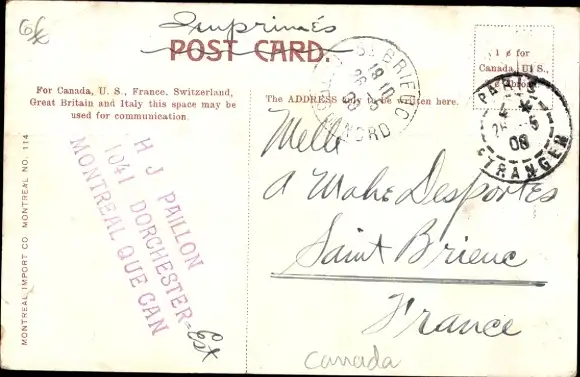 Imprimés
POST CARD.
For Canada, U. S., France, Switzerland,
Great Britain and Italy this space may be
used for communication.
The ADDRESS only to be written here.
1 ¢ for
Canada, U. S.,
ST BRIEUC
NORD
PARIS
08
ETRANGER
H J PAILLON
1041 DORCHESTER-Est
MONTREAL QUE CAN
MONTREAL IMPORT CO MONTREAL NO. 114
Melle
A Mahé Desportes
Saint Brieuc
France
Canada